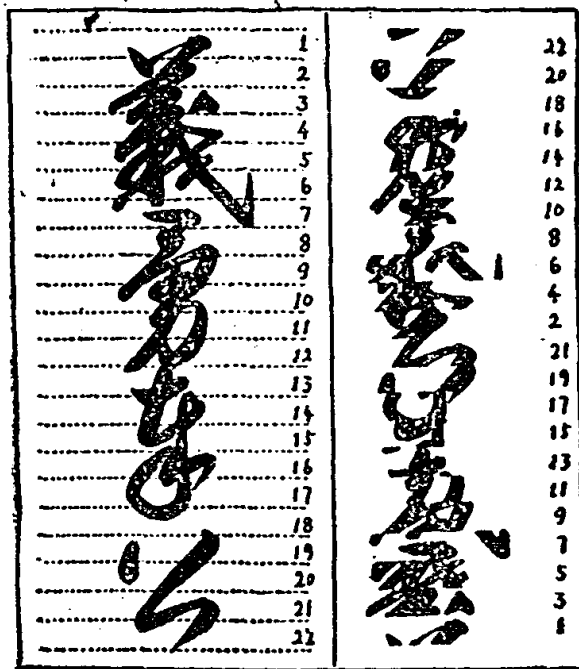 義勇奉公
1
2
3
4
5
6
7
8
9
10
11
12
13
14
15
16
17
18
19
20
21
22
22
20
18
16
14
12
10
8
6
4
2
21
19
17
15
13
11
9
7
5
3
1